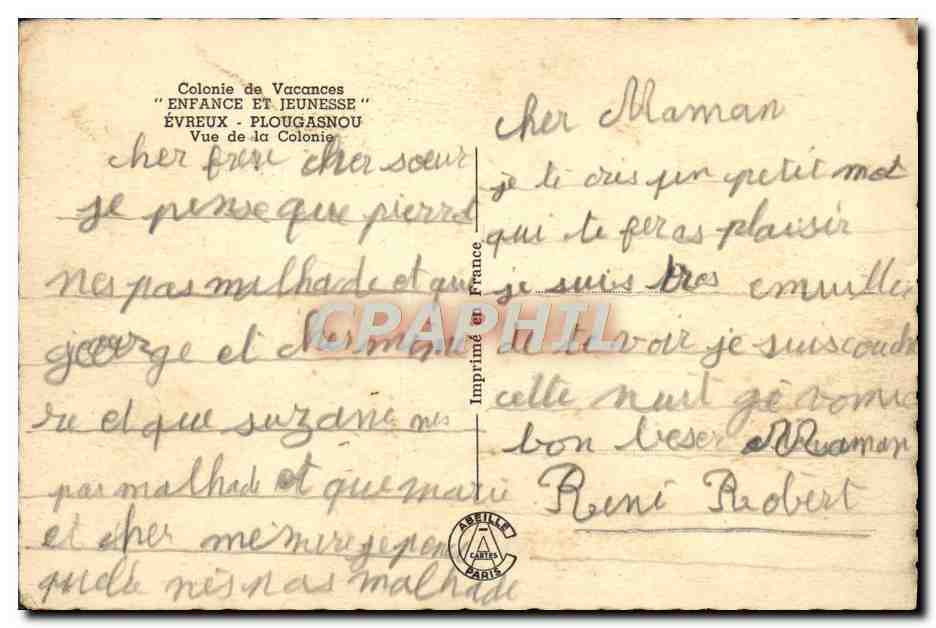 Colonie de Vacances
"ENFANCE ET JEUNESSE"
ÉVREUX - PLOUGASNOU
Vue de la Colonie
cher frere cher sœur
je pense que pierre
nes pas malhade et que
george et ches mémé
re et que suzane nes
pas malhade et que marie
et cher mémere je pense
quelle nes pas malhade
Imprimé en France
cher Maman
je te cris un petit mot
qui te feras plaisir
je suis tres
de te voir je suis couche
cette nuit jé vomie
bon beser Maman
René Robert
ABEILLE
CARTES
PARIS
CPAPHIL